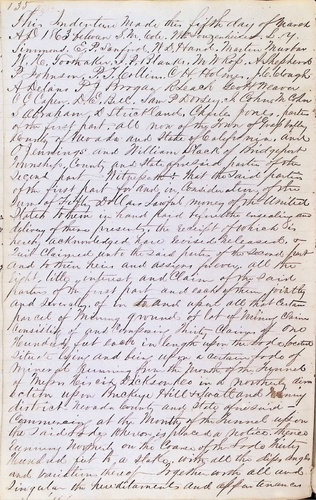 135
This Indenture Made this fifth day of March
AD 1863 between S. M. Cole. Mr
Simmons. E. P. Sanford W. D. Hand. Martin
W. H. Foothaker, J. P. Blanks. M.
P Johnson, F. G. Collins C. H. Holmes.
A Delano P J Brogan
C C Caper, D. E. Ball. Sam P Dorsey,
S Abraham, D Strickland, Charles Jones. parties
of the first part, all now of the Town of
County of Nevada and State of California. And
C Henderson and William Black of Bridgeport
Township, County and State aforesaid parties of the
Second part. Witnesseth that the Said parties
of the first part for and in Consideration of the
Sum of Fifty Dollars Lawful money of the United
States to them in hand paid before the ensealing and
delivery of these presents, the receipt of which is
hereby acknowledged have Released &
quit Claimed unto the Said parties of the Second part
and to their heirs and assigns forever, all the
right, title, interest and Claim of the Said
parties of the first part and each of them jointly
and Severally, of in to and upon all that Certain
parcel of Mining ground of lot of Mining Claims
Consisting of and Comprising thirty Claims of One
Hundred feet each in length upon the lode, located
Situate lying and being upon a Certain lode of
Mineral running from the Mouth of the Tunnel
of Messrs Jackson &co in a northerly dir-
ection upon Buckeye Hill Mining
district Nevada County and State aforesaid
Commencing at the Mouth of the Tunnel upon
the Said lode, whereon is placed a notice, thence
running Northerly on the Course of the lode thirty
hundred feet to a Stake, with all the dips angles
and variation thereof Together with all and
Singular the hereditaments and appurtenances